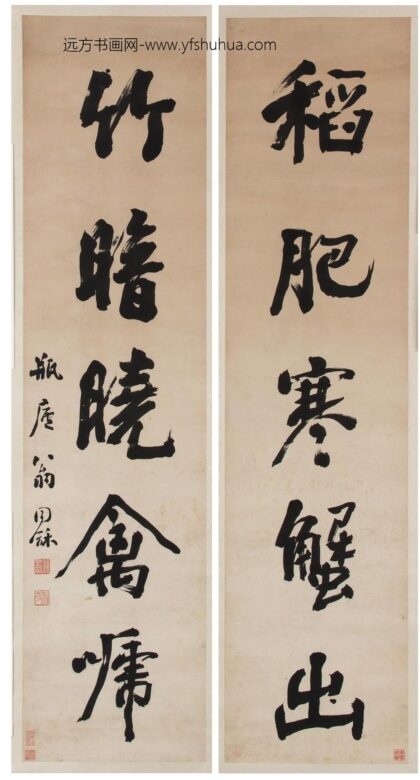 远方书画网-www.yfshuhua.com
稻肥寒蟹出
竹暗曉禽嘑
瓶廬翁同龢